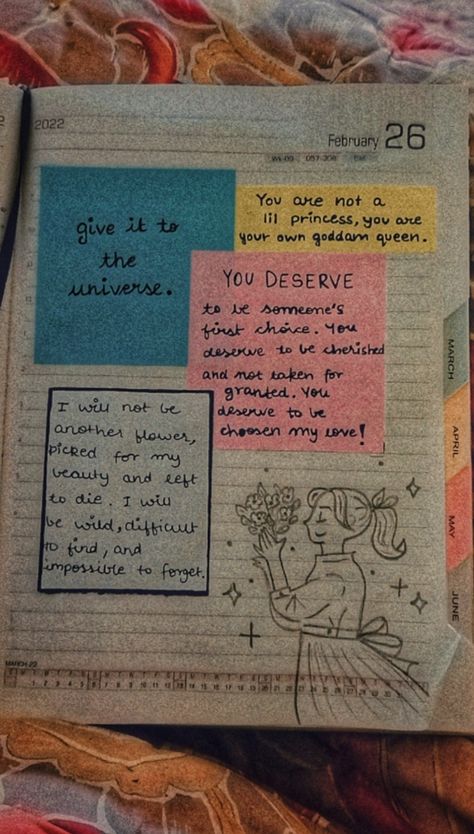 2022
February 26
give it to
the
universe.
You are not a
lil princess, you are
your own goddam queen.
YOU DESERVE
to be someone's
first choice. You
deserve to be cherished
and not taken for
granted. You
deserve to be
choosen my love!
I will not be
another flower,
picked for my
beauty and left
to die. I will
be wild, difficult
to find, and
impossible to forget.
MARCH
APRIL
MAY
JUNE
MARCH 22